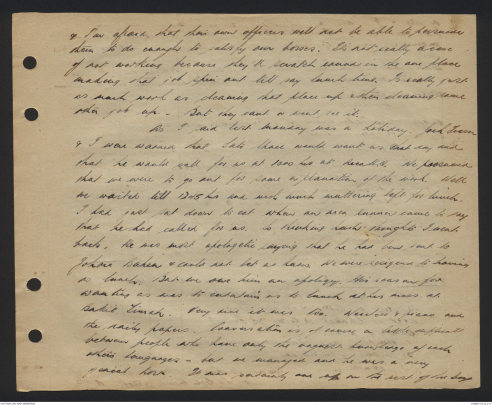 & I'm afraid that their own officers will not be able to persuade
them to do enough to satisfy our bosses. It's not really a case
of not working because they'll scratch around in the one place
making that job spin out till say lunch time. It's really just
as much work as cleaning that place up & then cleaning some
other job up. - But they can't or won't see it.
As I said last Monday was a holiday. Jack
& I were warned that Sato would want us that day and
that he would call for us at 1000 hrs at. We presumed
that we were to go out for some explanation of the work. Well
we waited till 1245 hrs and with much muttering left for lunch.
I had just sat down to eat when an area runner came to say
that he had called for us. So breaking rush straight I went
back. He was most apologetic saying that he had been sent to
Johore and could not let us know. We were resigned to having
no lunch. But we gave him our apology. His reason for
wanting us was to entertain us to lunch at his mess at
Bukit Timah. Very nice it was too. Waited & mess and
the daily papers. Conversation is of course a little difficult
between people who have only the vaguest knowledge of each
others languages - but we managed and he was a very
genial host. It was certainly one up on the rest of the boys